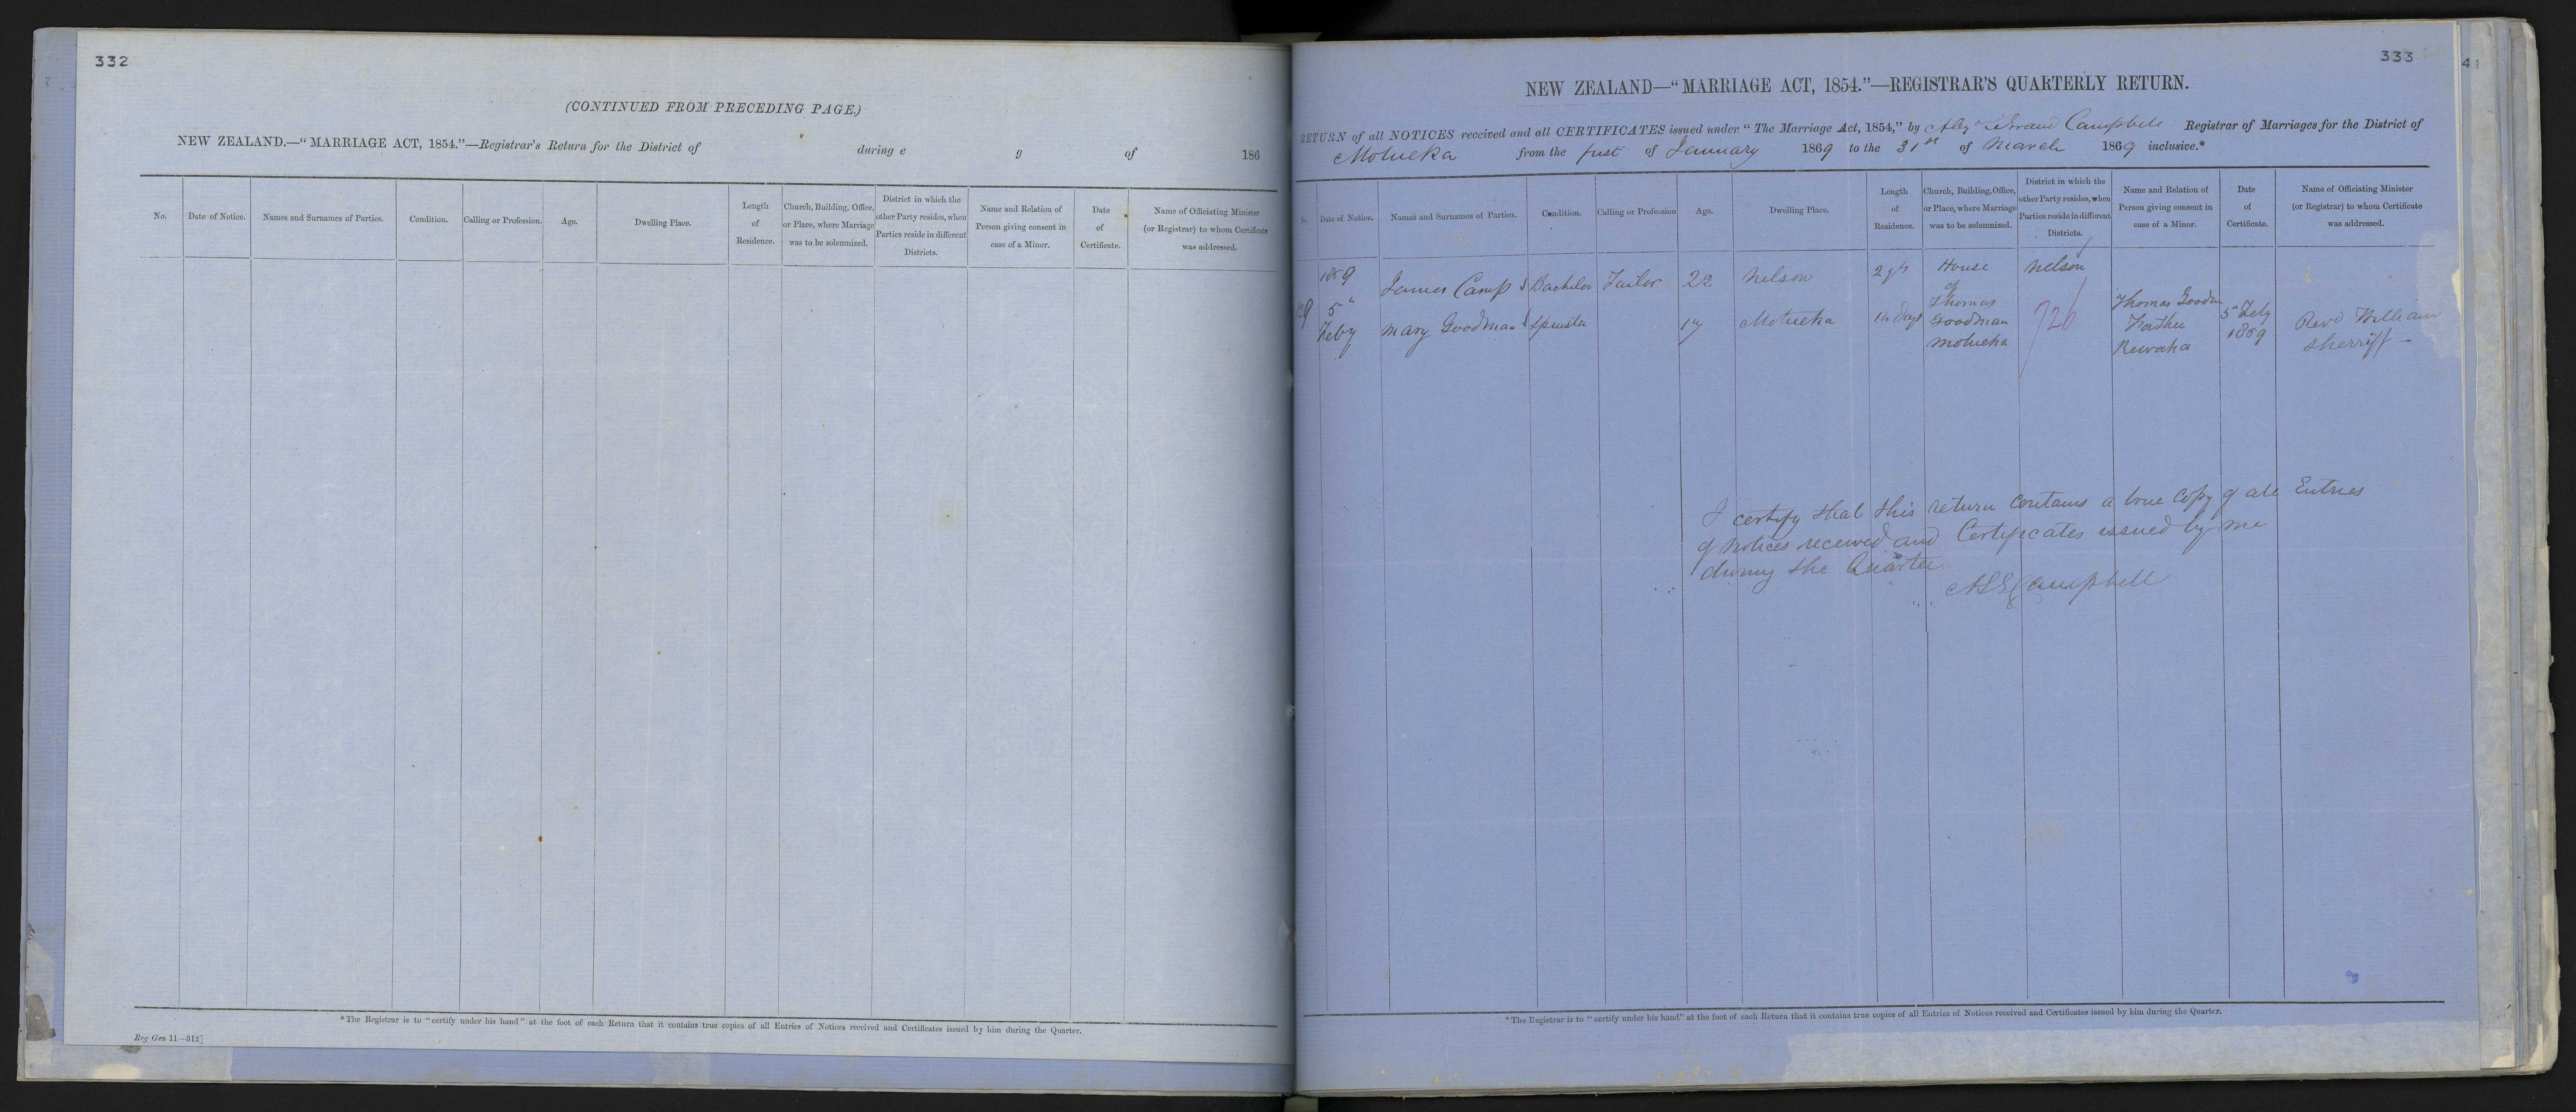 332
(CONTINUED FROM PRECEDING PAGE.)
NEW ZEALAND.—"MARRIAGE ACT, 1854."—Registrar's Return for the District of during e g of 186
No. Date of Notice. Names and Surnames of Parties. Condition. Calling or Profession. Age. Dwelling Place. Length of Residence. Church, Building, Office, or Place, where Marriage was to be solemnized. District in which the other Party resides, when Parties reside in different Districts. Name and Relation of Person giving consent in case of a Minor. Date of Certificate. Name of Officiating Minister (or Registrar) to whom Certificate was addressed.
*The Registrar is to "certify under his hand" at the foot of each Return that it contains true copies of all Entries of Notices received and Certificates issued by him during the Quarter.
Reg Gen 11—312]
333
41
NEW ZEALAND—"MARRIAGE ACT, 1854."—REGISTRAR'S QUARTERLY RETURN.
RETURN of all NOTICES received and all CERTIFICATES issued under "The Marriage Act, 1854," by Campbell Registrar of Marriages for the District of
Motueka from the first of January 1869 to the 31st of March 1869 inclusive.*
No. Date of Notice. Names and Surnames of Parties. Condition. Calling or Profession Age. Dwelling Place. Length of Residence. Church, Building, Office, or Place, where Marriage was to be solemnized. District in which the other Party resides, when Parties reside in different Districts. Name and Relation of Person giving consent in case of a Minor. Date of Certificate. Name of Officiating Minister (or Registrar) to whom Certificate was addressed.
1869 James Camp Bachelor Tailor 22 Nelson House Nelson
5" of Thomas Thomas 5 Feby
Feby Mary Goodman Spinster 17 Motueka 14 days Goodman 726 Father 1869 Revd William
Motueka Rewaka Sherriff
I certify that this return contains a true copy of all Entries
of notices received and Certificates issued by me
during the Quarter
Campbell
*The Registrar is to "certify under his hand" at the foot of each Return that it contains true copies of all Entries of Notices received and Certificates issued by him during the Quarter.